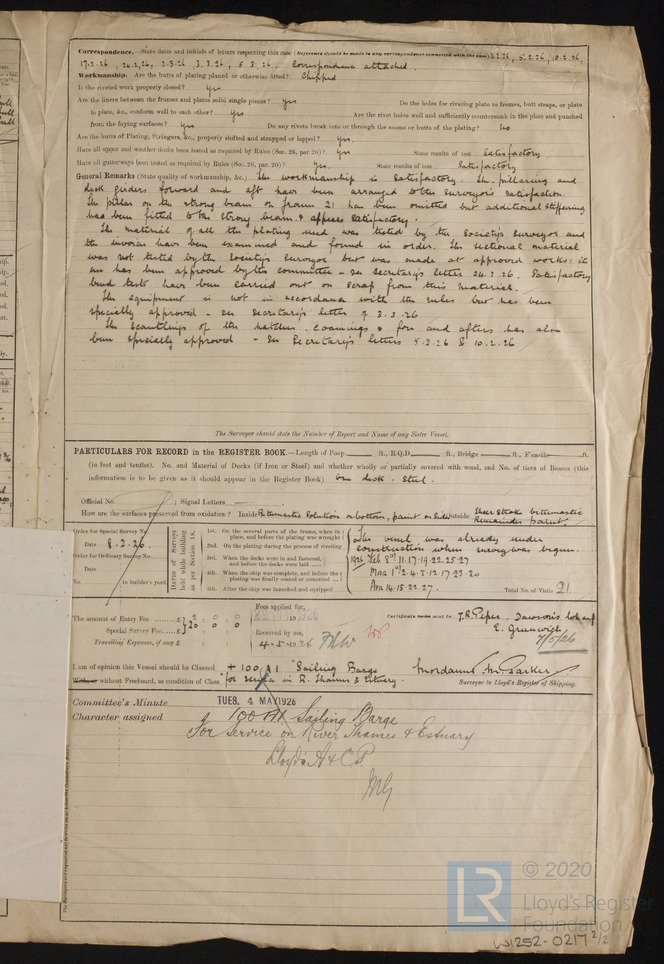 Correspondence.—State dates and initials of letters respecting this case (Reference should be made in any correspondence connected with the case) 2.2.26, 5.2.26, 10.2.26,
17.2.26, 24.2.26, 2.3.26, 3.3.26, 5.3.26 – Correspondence attached.
Workmanship. Are the butts of plating planed or otherwise fitted? Chipped
Is the riveted work properly closed? Yes
Are the liners between the frames and plates solid single pieces? Yes Do the holes for riveting plate to frames, butt straps, or plate
to plate, &c., conform well to each other? Yes Are the rivet holes well and sufficiently countersunk in the plate and punched
from the faying surfaces? Yes Do any rivets break into or through the seams or butts of the plating? No
Are the butts of Plating, Stringers, &c., properly shifted and strapped or lapped? Yes.
Have all upper and weather decks been tested as required by Rules (Sec. 26, par 20)? Yes State results of test Satisfactory
Have all gutterways been tested as required by Rules (Sec. 26, par. 20)? Yes. State results of test Satisfactory
General Remarks (State quality of workmanship, &c.) The workmanship is satisfactory. The pillaring and
deck girders forward and aft have been arranged to the Surveyors satisfaction.
The pillar on the strong beam on frame 21 has been omitted but additional stiffening
has been fitted to the strong beam & appears satisfactory.
The material of all the plating used was tested by the Society's Surveyor and
the invoices have been examined and found in order. The sectional material
was not tested by the Society's Surveyor but was made at approved works: its
use has been approved by the committee – See Secretary's letter 24.2.26. Satisfactory
bend tests have been carried out on scrap from this material.
The equipment is not in accordance with the rules but has been
specially approved – See Secretary's letter of 3.3.26
The Scantlings of the hatches, coamings & fore and afters has also
been specially approved – See Secretary's letters 5.2.26 & 10.2.26
The Surveyor should state the Number of Report and Name of any Sister Vessel.
PARTICULARS FOR RECORD in the REGISTER BOOK.—Length of Poop ft., R.Q.D. ft., Bridge ft., F'castle ft.
(in feet and tenths). No. and Material of Decks (if Iron or Steel) and whether wholly or partially covered with wood, and No. of tiers of Beams (this
information is to be given as it should appear in the Register Book) One deck – Steel.
Official No. ; Signal Letters
How are the surfaces preserved from oxidation? Inside Bitumastic Solution on bottom, paint on sides Outside Sheer Strake bitumastic
Remainder paint.
Order for Special Survey No.
Date 8.2.26.
Order for Ordinary Survey No.
Date
No. in builder's yard.
DATES of Surveys held while building as per Section 18.
1st. On the several parts of the frame, when in place, and before the plating was wrought
2nd. On the plating during the process of riveting
3rd. When the decks were in and fastened, and before the decks were laid
4th. When the ship was complete, and before the plating was finally coated or cemented
5th. After the ship was launched and equipped
The vessel was already under
construction when survey was begun.
1926 Feb 8th 11.17.19.22.25.27
Mar 1st 2.4.8.12.17.23.20
Apr 14.15.22.27.
Total No. of Visits 21.
The amount of Entry Fee £
Special Survey Fee £ 20 : 0 : 0
Travelling Expenses, if any £
Fees applied for,
1926
Received by me,
4.5.1926
Certificate sent to T.R. Piper. Dawson's
E. Greenwich
7/5/26
I am of opinion this Vessel should be Classed + 100 A1 "Sailing Barge
With or without Freeboard, as condition of Class for service in R. Thames & Estuary.
Surveyor to Lloyd's Register of Shipping.
Committee's Minute TUES. 4 MAY 1926
Character assigned + 100 A1 Sailing Barge
For Service on River Thames & Estuary
Lloyd's A & C.P.
© 2020
LR
Lloyd's Register
Foundation
W1252-0217 2/2